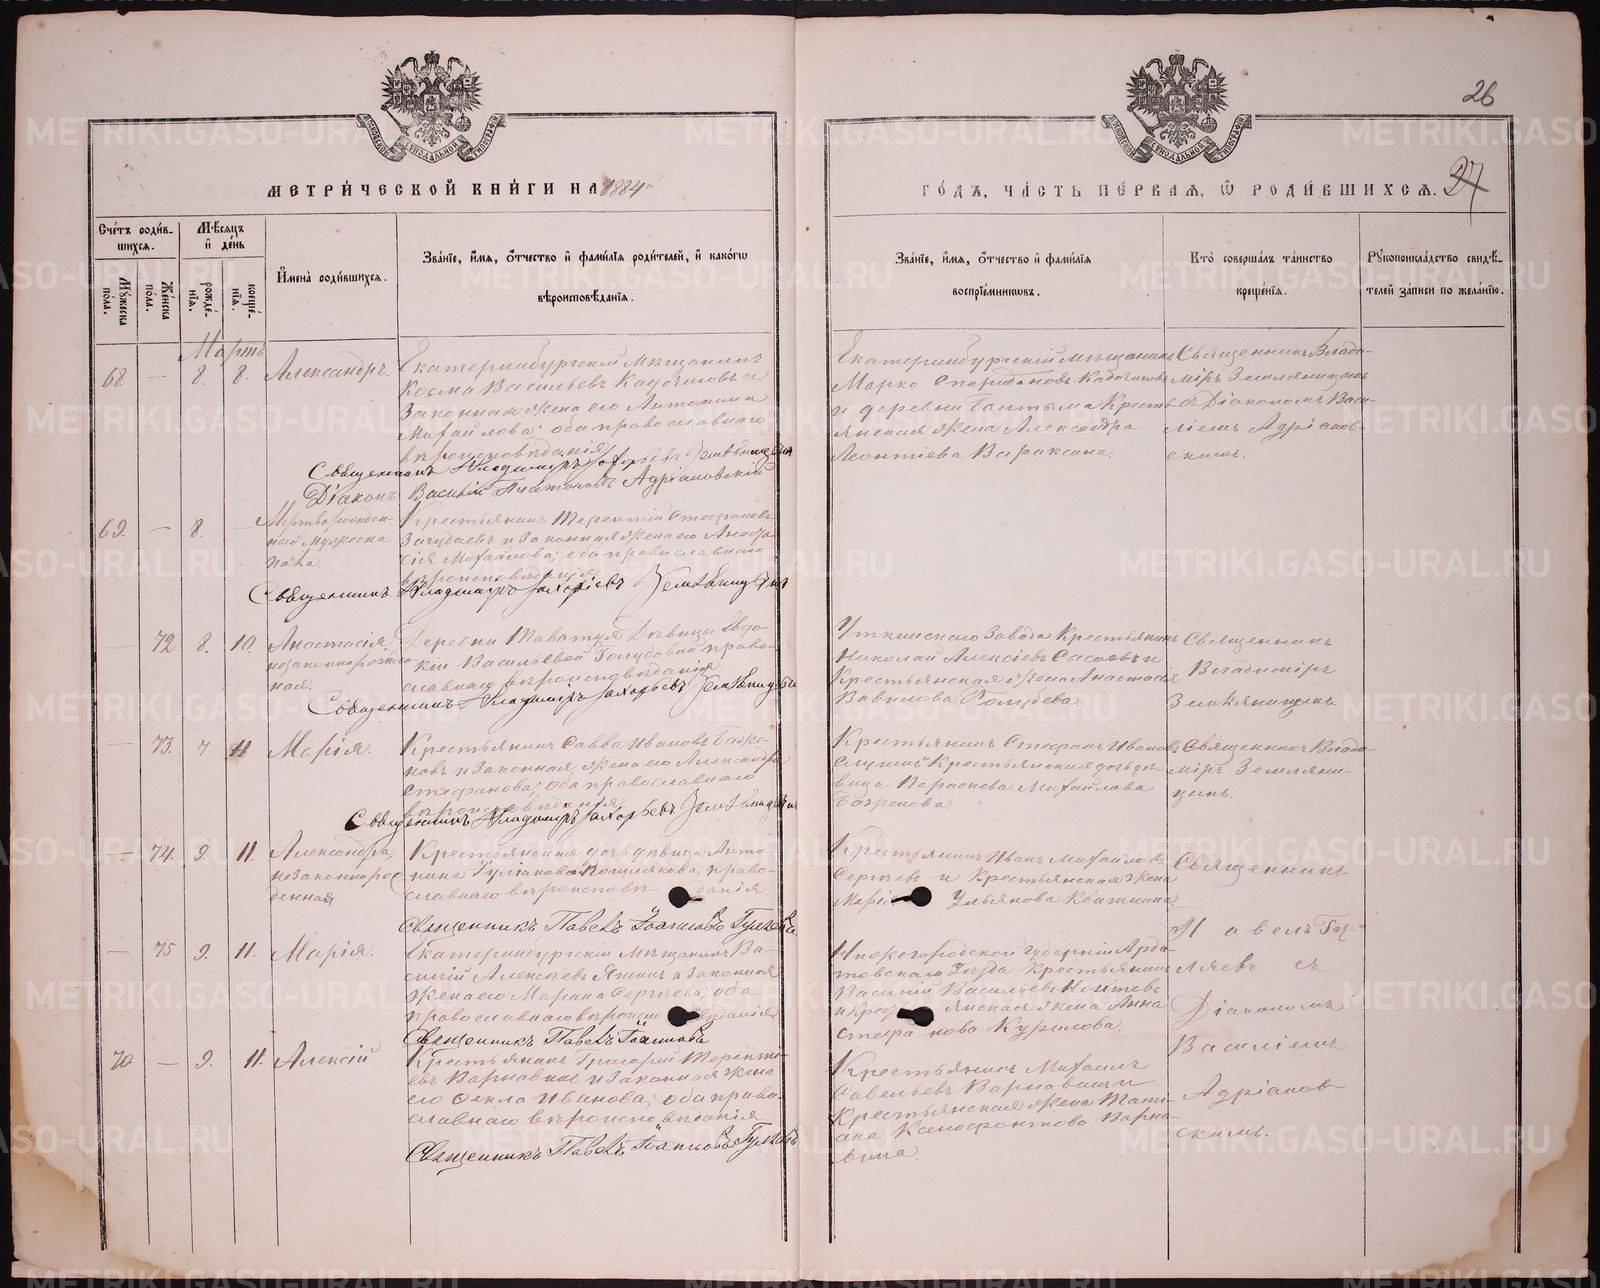 26
27
МЕТРИ́ЧЕСКОЙ КНИ́ГИ НА 1884й
ГОДЪ, ЧА́СТЬ ПЕ́РВАЯ, Ѿ РОДИ́ВШИХСЯ.
Сче́тъ роди́в-
шихся.
Мѣ́сяцъ
и҆ де́нь
Му́жеска
по́ла.
Же́нска
по́ла.
рожде́-
нїя.
креще́-
нїя.
И҆мена̀ роди́вшихся.
Зва́нїе, и҆́мя, ѻ҆́тчество и҆ фами́лїя роди́телей, и҆ како́гѡ
вѣроисповѣ́данїя.
Зва́нїе, и҆́мя, ѻ҆́тчество и҆ фами́лїя
воспрїе́мникѡвъ.
Кто̀ соверша́лъ та́инство
креще́нїя.
Рꙋкоприкла́дство свидѣ́-
телей за́писи по жела́нїю.
Мартъ
68
—
8.
8.
Александръ
Екатеринбургскій мѣщанинъ
Косма Васильевъ Кадочиковъ и
законная жена его Антонина
Михайлова; оба православнаго
вѣроисповѣданія
Священникъ Владимиръ Захарьевъ Земляницынъ
Діаконъ Василій Платоновъ Адріановскій
Екатеринбургскій мѣщанинъ
Марко Спиридоновъ Кадочиковъ
и деревни Балтыма Кресть-
янская жена Александра
Леонтіева Вараксина
Священникъ Влади-
міръ Земляницынъ
съ Діакономъ Васи-
ліемъ Адріанов-
скимъ.
69.
—
8.
Мертворожден-
ный мужеска
пола.
Крестьянинъ Терентій Стефановъ
и законная жена его Анаста-
сія Михайлова; оба православнаго
вѣроисповѣданія
Священникъ Владимиръ Захарьевъ Земляницынъ
—
72
8.
10.
Анастасія,
незаконнорожден-
ная.
Деревни Таватуя дѣвицы Евдо-
кіи Васильевой Голубовой право-
славнаго вѣроисповѣданія
Священникъ Владимиръ Захарьевъ Земляницынъ
Уткинскаго завода Крестьянинъ
Николай Алексіевъ и
Крестьянская жена Анастасія
Вавилова Голубева
Священникъ
Владимиръ
Земляницынъ.
—
73.
7.
11
Марія.
Крестьянинъ Савва Ивановъ Баже-
новъ и законная жена его Александра
Стефанова; оба православнаго
вѣроисповѣданія
Священникъ Владимиръ Захарьевъ Земляницынъ
Крестьянинъ Стефанъ Ивановъ
и Крестьянская дочь дѣ-
вица Параскева Михайлова
Баженова
Священникъ Влади-
міръ Земляни-
цынъ.
—
74.
9.
11.
Александра,
незаконнорож-
денная
Крестьянская дочь дѣвица Анто-
нина право-
славнаго вѣроисповѣ- данія
Священникъ Павелъ Іоанновъ Гуляевъ
Крестьянинъ Иванъ Михайловъ
Сергѣевъ и Крестьянская жена
Марія Ульянова
Священникъ
Павелъ Гу-
ляевъ съ
Діакономъ
Василіемъ
Адріанов-
скимъ.
—
75
9.
11.
Марія.
Екатеринбургскій мѣщанинъ Ва-
силій Алексѣевъ и законная
жена его Марина Сергѣева; оба
православнаго вѣроисповѣданія
Священникъ Павелъ Іоанновъ
Нижегородской губерніи Арда-
товскаго уѣзда Крестьянинъ
Василій Васильевъ
и крестьянская жена Анна
Стефанова Курилова.
70
—
9.
11.
Алексій
Крестьянинъ Григорій Теренти-
евъ Варнавинъ и законная жена
его Фекла Иванова; оба право-
славнаго вѣроисповѣданія
Священникъ Павелъ Іоанновъ Гуляевъ
Крестьянинъ Михаилъ
Савельевъ Варнавинъ и
Крестьянская жена Тати-
ана Ксенофонтова Варна-
вина.